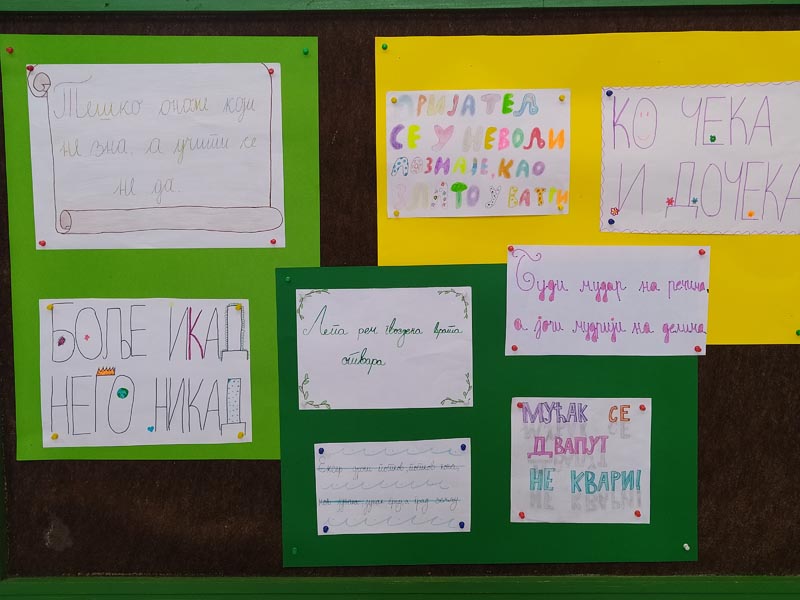 Тешко ономе који
не зна, а учити се
не да.
ПРИЈАТЕЉ
СЕ У НЕВОЉИ
ПОЗНАЈЕ, КАО
ЗЛАТО У ВАТРИ
КО ЧЕКА
И ДОЧЕКА
БОЉЕ ИКАД
НЕГО НИКАД
Лепа реч гвоздена врата
отвара
Буди мудар на речима,
а још мудрији на делима
МУЋАК СЕ
ДВАПУТ
НЕ КВАРИ!